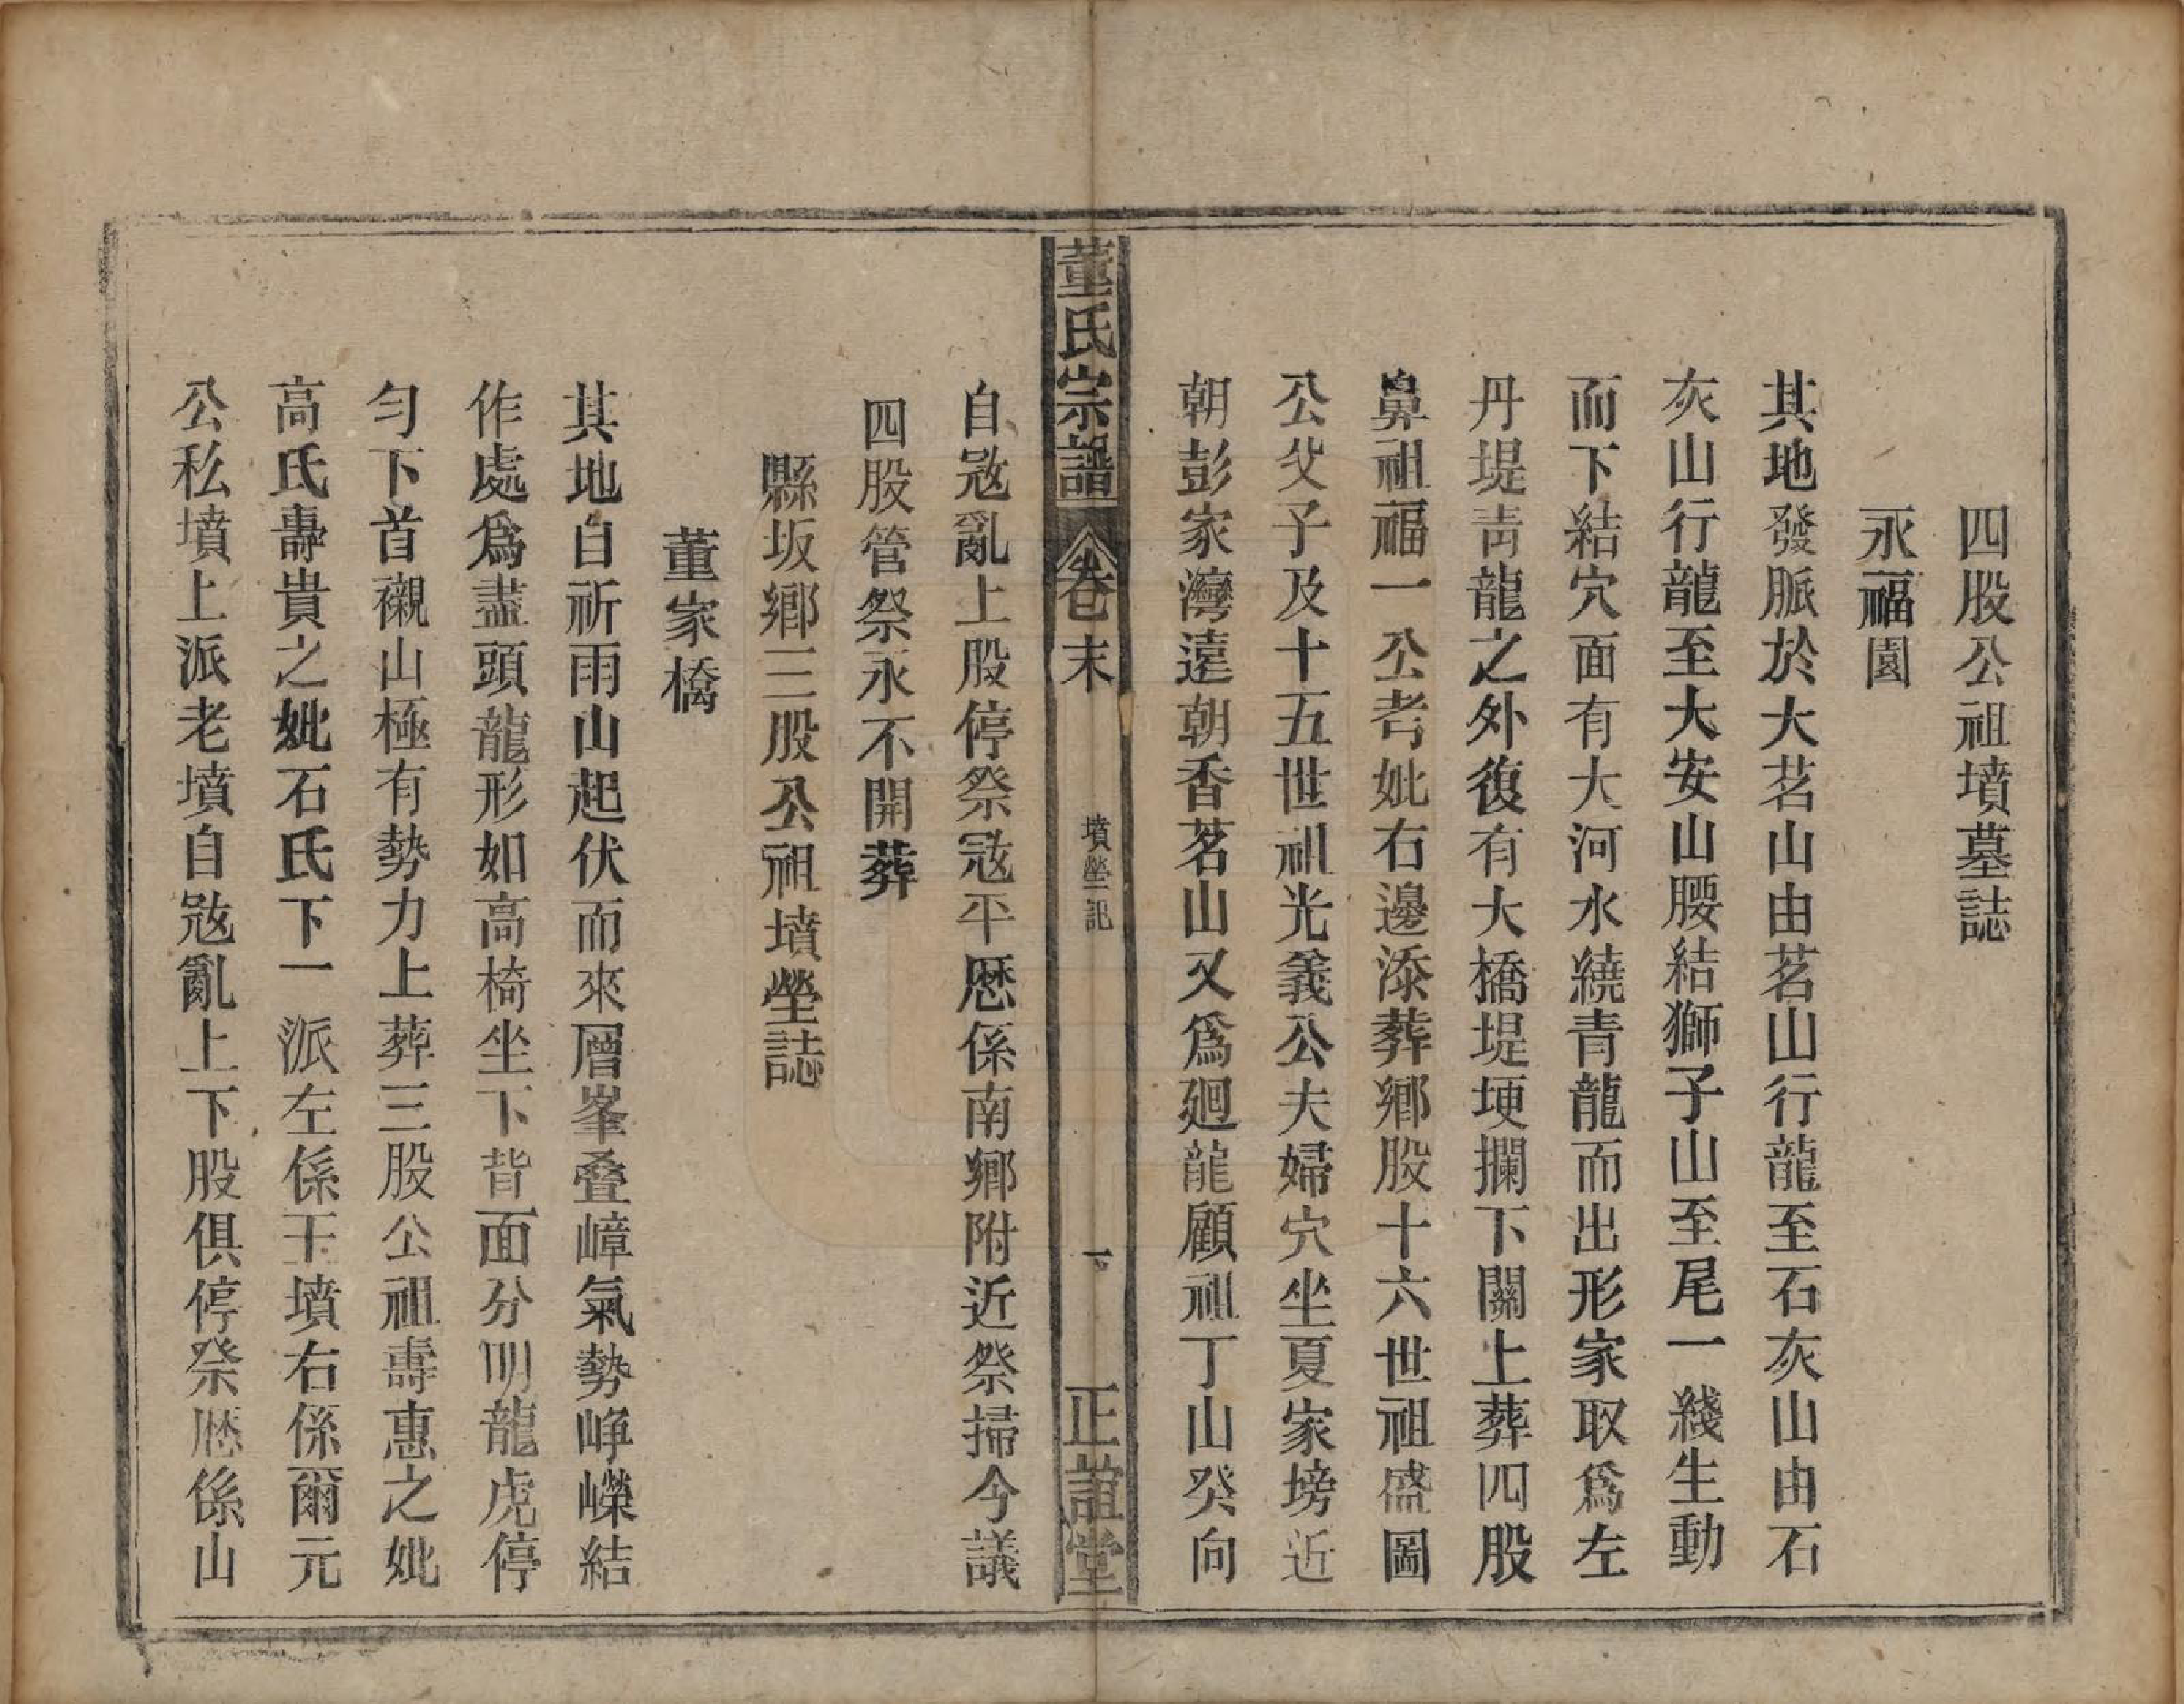 四股公祖墳墓誌
永福園
其地發脈於大茗山由茗山行龍至石灰山由石
灰山行龍至大安山腰結獅子山至尾一綫生動
而下結穴面有大河水繞青龍而出形家取爲左
丹堤青龍之外復有大橋堤埂攔下關上葬四股
鼻祖福一公考妣右邊添葬鄉股十六世祖盛圖
公父子及十五世祖光義公夫婦穴坐夏家塝近
朝彭家灣遠朝香茗山又爲廻龍顧祖丁山癸向
董氏宗譜
卷末
墳塋記
正誼堂
自𡨥亂上股停祭寇平歷係南鄉附近祭掃今議
四股管祭永不開葬
縣坂鄉三股公祖墳塋誌
董家橋
其地自祈雨山起伏而來層峯叠嶂氣勢崢嶸結
作處爲盡頭龍形如高椅坐下背面分明龍虎停
勻下首襯山極有勢力上葬三股公祖壽惠之妣
高氏壽貴之妣石氏下一派左係王墳右係爾元
公私墳上派老墳自𡨥亂上下股俱停祭歷係山